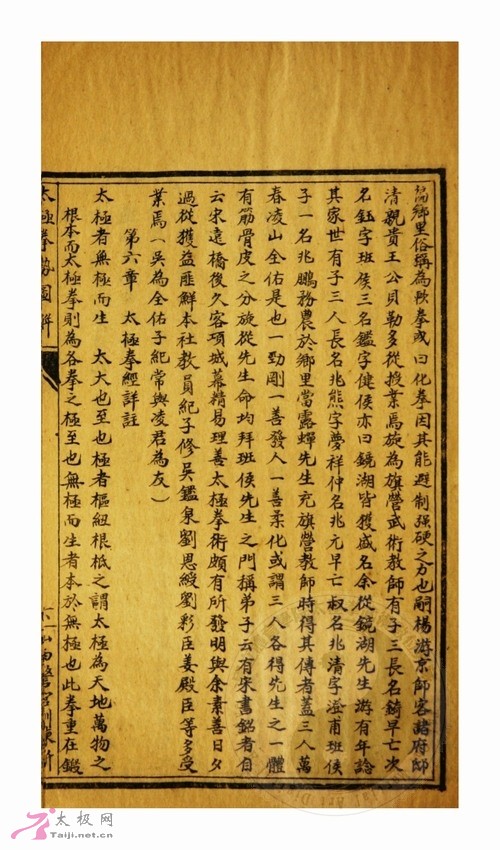 鄉里俗稱為軟拳或曰化拳因其能避制强硬之力也嗣楊游京師客諸府邸
清親貴王公貝勒多從授業焉旋為旗營武術教師有子三長名錡早亡次
名鈺字班侯三名鑑字健侯亦曰鏡湖皆獲盛名余從鏡湖先生游有年諗
其家世有子三人長名兆熊字夢祥仲名兆元早亡叔名兆清字澄甫班侯
子一名兆鵬務農於鄉里當露蟬先生充旗營教師時得其傳者蓋三人萬
春凌山全佑是也一勁剛一善發人一善柔化或謂三人各得先生之一體
有筋骨皮之分旋從先生命均拜班侯先生之門稱弟子云有宋書銘者自
云宋遠橋後久客項城幕精易理善太極拳術頗有所發明與余素善日夕
過從獲益匪鮮本社教員紀子修吳鑑泉劉恩綬劉彩臣姜殿臣等多受
業焉（吳為全佑子紀常與凌君為友）
第六章 太極拳經詳註
太極者無極而生 太大也至也極者樞紐根柢之謂太極為天地萬物之
根本而太極拳則為各拳之極至也無極而生者本於無極也此拳重在鍛
太極拳勢圖解
太极网
Taiji.net.cn